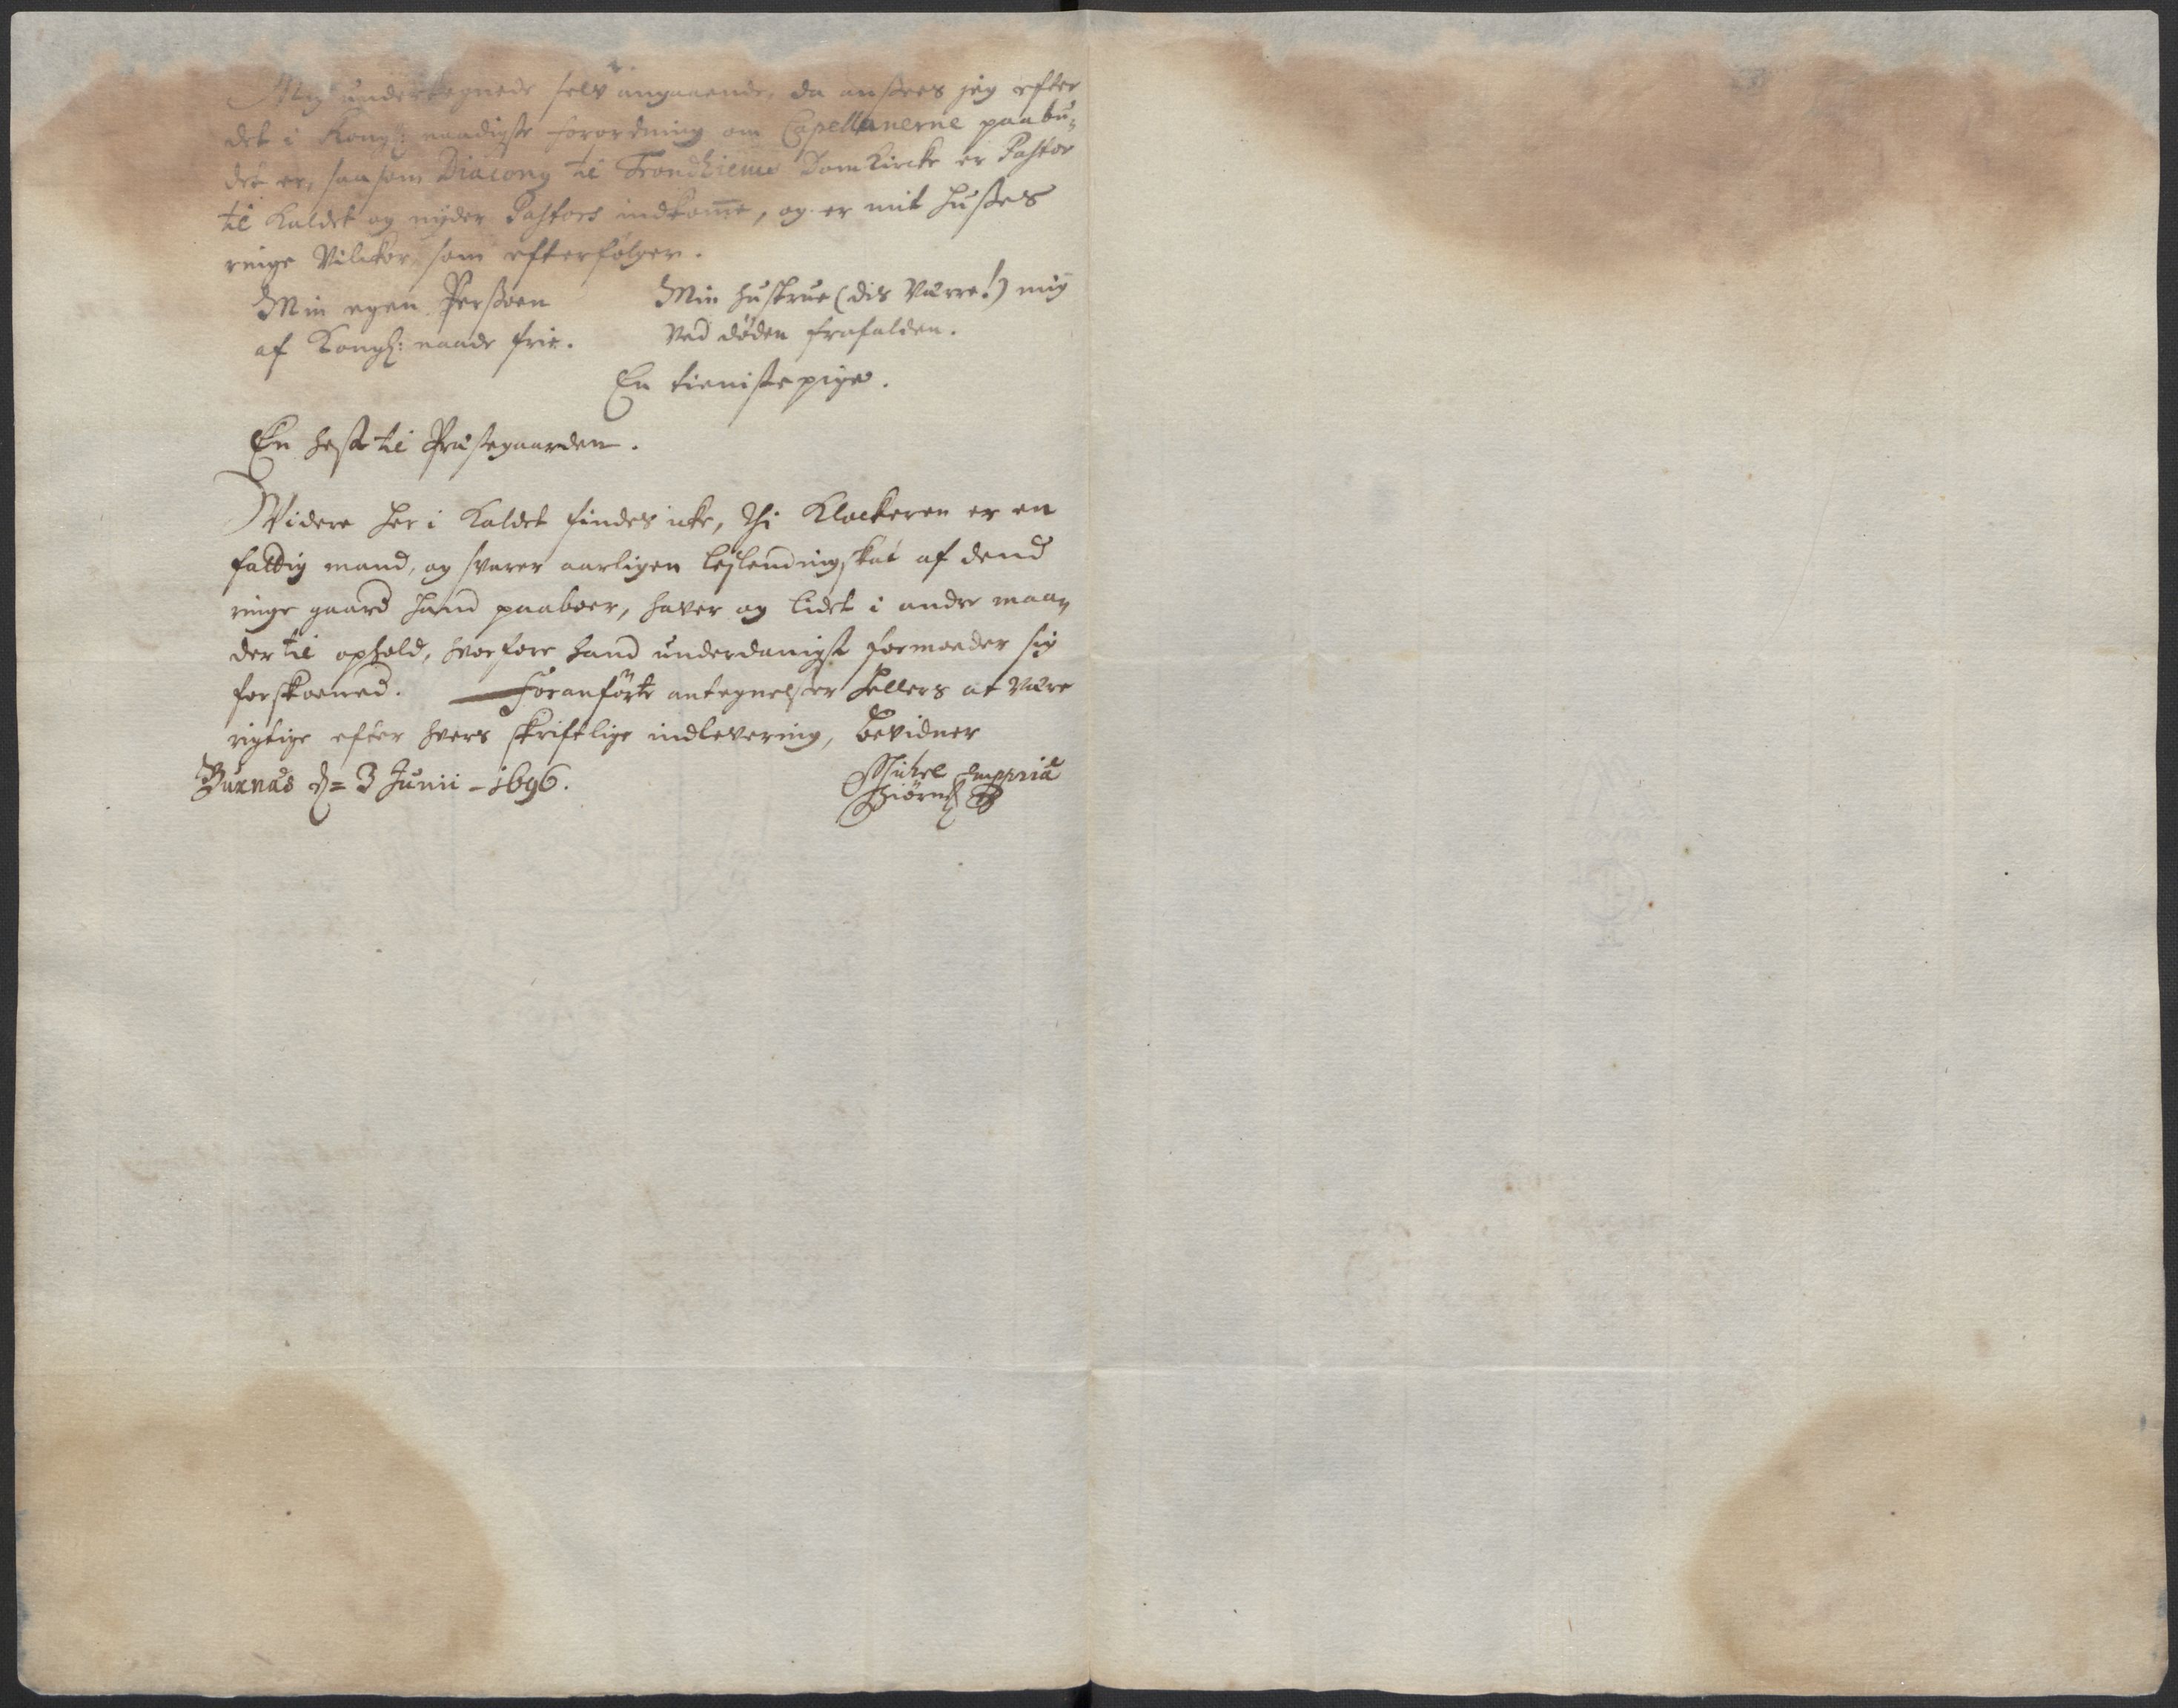 Mig undertegnede selv angaaende, da ansees jeg efter
det i Kongl: naadigste forordning om Capellanerne paabu-
det er, saasom Diacony til Trondhiems Domkircke er Pastor
til Kaldet og nyder Pastors indkom̅e, og er mit husses
ringe Vilckor som efterfølger.
Min egen Persoen
af Kongl: naade frie.
Min hustrue (dis Værre!) mig
Ved døden frafalden.
En tieniste pige.
En hest til Præstegaarden.
Widere her i Kaldet findes icke, thi Klockeren er en
fattig mand, og svarer aarligen leylendingskat af dend
ringe gaard hand paaboer, haver og lidet i andre maa-
der til ophold, hvorfore hand underdanigst formoeder sig
forskoened. Foranførte antegnelser hellers at være
rigtige efter hvers skriftlige indlevering, bevidner
Buxnæs d= 3 Junii - 1696.
Michel
Biørns
mppria